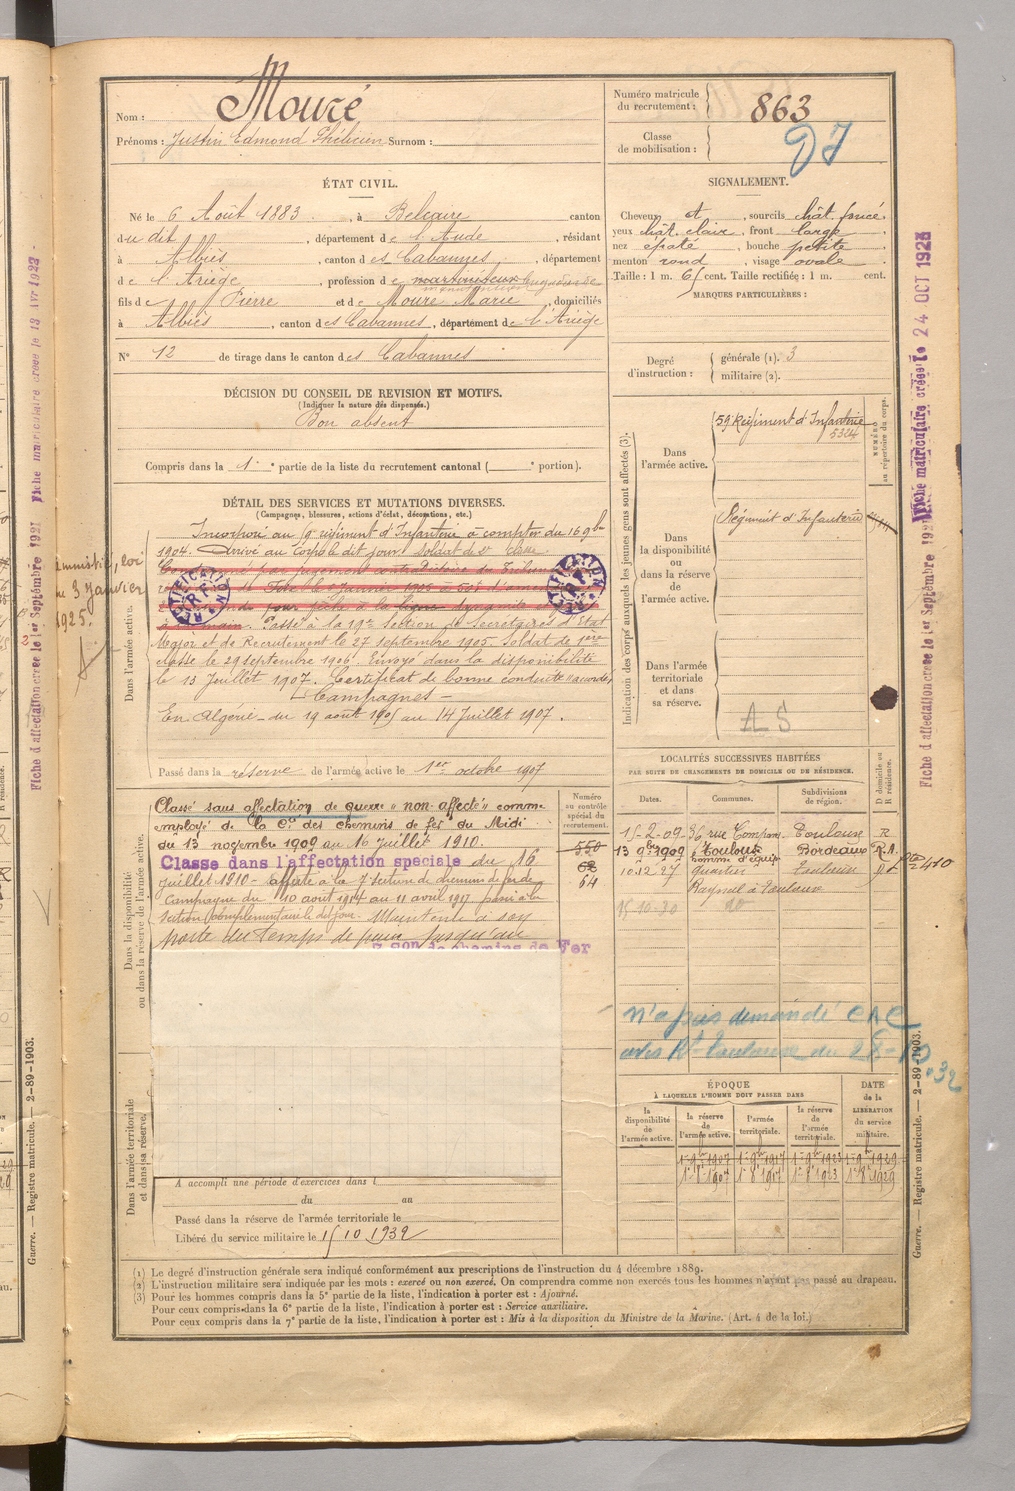 Nom : Mouré
Prénoms : Justin Edmond Thélicien Surnom :
Numéro matricule du recrutement : 863
Classe de mobilisation :
ÉTAT CIVIL.
Né le 6 Août 1883, à Belcaire canton
du dit, département de l'Aude, résidant
à Albiès, canton des Cabannes, département
de l'Ariège, profession de
fils de Pierre et de Moure Marie, domiciliés
à Albiès, canton des Cabannes, département de l'Ariège
N° 12 de tirage dans le canton des Cabannes
DÉCISION DU CONSEIL DE REVISION ET MOTIFS.
(Indiquer la nature des dispenses.)
Bon absent
Compris dans la 1e partie de la liste du recrutement cantonal ( e portion).
SIGNALEMENT.
Cheveux et, sourcils chât. foncé.
yeux chât. clair, front large
nez épaté, bouche petite
menton rond, visage ovale.
Taille : 1 m. 65 cent. Taille rectifiée : 1 m. cent.
MARQUES PARTICULIÈRES :
Degré d'instruction : générale (1). 3
militaire (2).
DÉTAIL DES SERVICES ET MUTATIONS DIVERSES.
(Campagnes, blessures, actions d'éclat, décorations, etc.)
Dans l'armée active.
Incorporé au 59e régiment d'Infanterie à compter du 16 9bre
1904. Arrivé au corps le dit jour. Soldat de 2e classe.
Amnistié, loi
du 3 Janvier
1925.
RECTIFICATION
R. F.
RECTIFICATION
R. F.
Passé à la 19e Section de Secrétaires d'Etat
Major et de Recrutement le 27 septembre 1905. Soldat de 1ère
classe le 29 septembre 1906. Envoyé dans la disponibilité
le 13 Juillet 1907. Certificat de bonne conduite "accordé"
Campagnes
En Algérie du 19 août 1905 au 14 Juillet 1907.
Passé dans la réserve de l'armée active le 1er octobre 1907
Indication des corps auxquels les jeunes gens sont affectés (3).
NUMÉRO au répertoire du corps.
Dans l'armée active.
59e Régiment d'Infanterie
5324
Dans la disponibilité ou dans la réserve de l'armée active.
Régiment d'Infanterie
Dans l'armée territoriale et dans sa réserve.
A S
Dans la disponibilité ou dans la réserve de l'armée active.
Classé sans affectation de guerre "non-affecté" comme
employé de la Cie des chemins de fer du Midi
du 13 novembre 1909 au 16 juillet 1910.
Classé dans l'affectation spéciale du 16
juillet 1910 - affecté à la 7e section de chemins de fer de
Campagne du 10 août 1914 au 11 avril 1917 passé à la
section complémentaire le dit jour. Maintenu à son
poste du temps de paix jusqu'au
Son de chemins de Fer
Numéro au contrôle spécial du recrutement.
550
62
64
LOCALITÉS SUCCESSIVES HABITÉES
PAR SUITE DE CHANGEMENTS DE DOMICILE OU DE RÉSIDENCE.
Dates. Communes. Subdivisions de région. D domicile ou R résidence.
15-2-09 36 rue Compans Toulouse R
13 9bre 1909 à Toulouse Bordeaux R.A.
10 12 27 quartier Toulouse
Raynal à Toulouse
15-10-30 do
n'a pas demandé CAC
avis Rt Toulouse du 28-10
.32
Dans l'armée territoriale et dans sa réserve.
A accompli une période d'exercices dans l
du au
Passé dans la réserve de l'armée territoriale le
Libéré du service militaire le 15 10 1932
ÉPOQUE
À LAQUELLE L'HOMME DOIT PASSER DANS
la disponibilité de l'armée active. la réserve de l'armée active. l'armée territoriale. la réserve de l'armée territoriale. DATE de la LIBÉRATION du service militaire.
1er 9bre 1907 1er 9bre 1917 1er 9bre 1923 1er 9bre 1929
1er 8bre 1907 1er 8bre 1917 1er 8bre 1923 1er 8bre 1929
(1) Le degré d'instruction générale sera indiqué conformément aux prescriptions de l'instruction du 4 décembre 1889.
(2) L'instruction militaire sera indiquée par les mots : exercé ou non exercé. On comprendra comme non exercés tous les hommes n'ayant pas passé au drapeau.
(3) Pour les hommes compris dans la 5e partie de la liste, l'indication à porter est : Ajourné.
Pour ceux compris dans la 6e partie de la liste, l'indication à porter est : Service auxiliaire.
Pour ceux compris dans la 7e partie de la liste, l'indication à porter est : Mis à la disposition du Ministre de la Marine. (Art. 4 de la loi.)
Fiche matriculaire créée le 24 OCT 1928
Fiche d'affectation créée le 1er Septembre 192
Guerre. — Registre matricule. — 2-89-1903.
Fiche matriculaire créée le 13 Avr 192
Fiche d'affectation créée le 1er Septembre 1927
Guerre. — Registre matricule. — 2-89-1903.